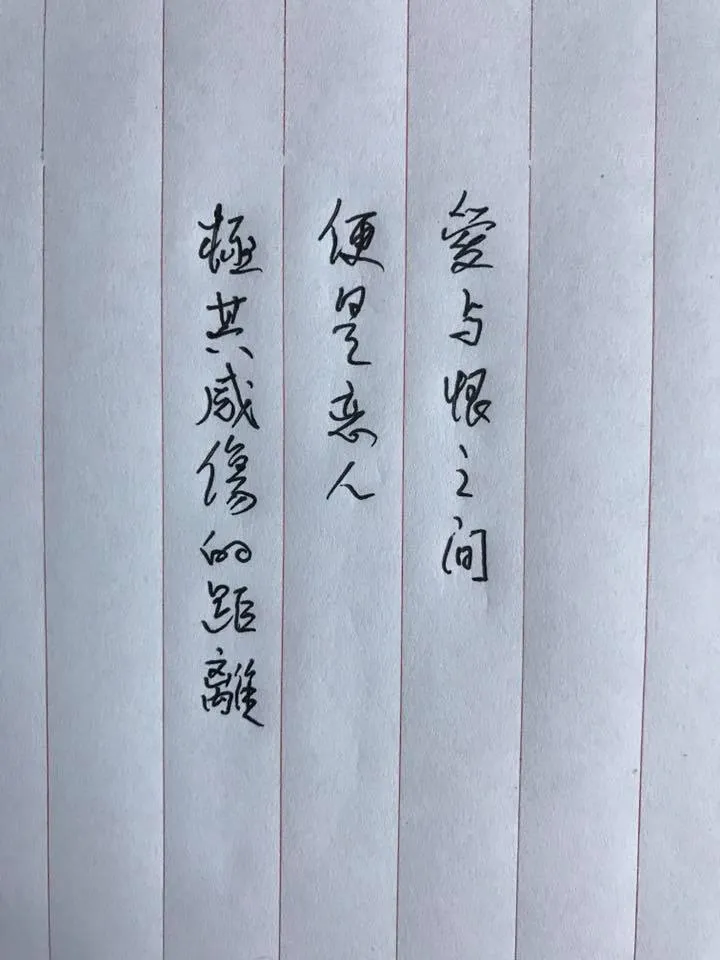 愛与恨之间
便是恋人
極其感傷的距離